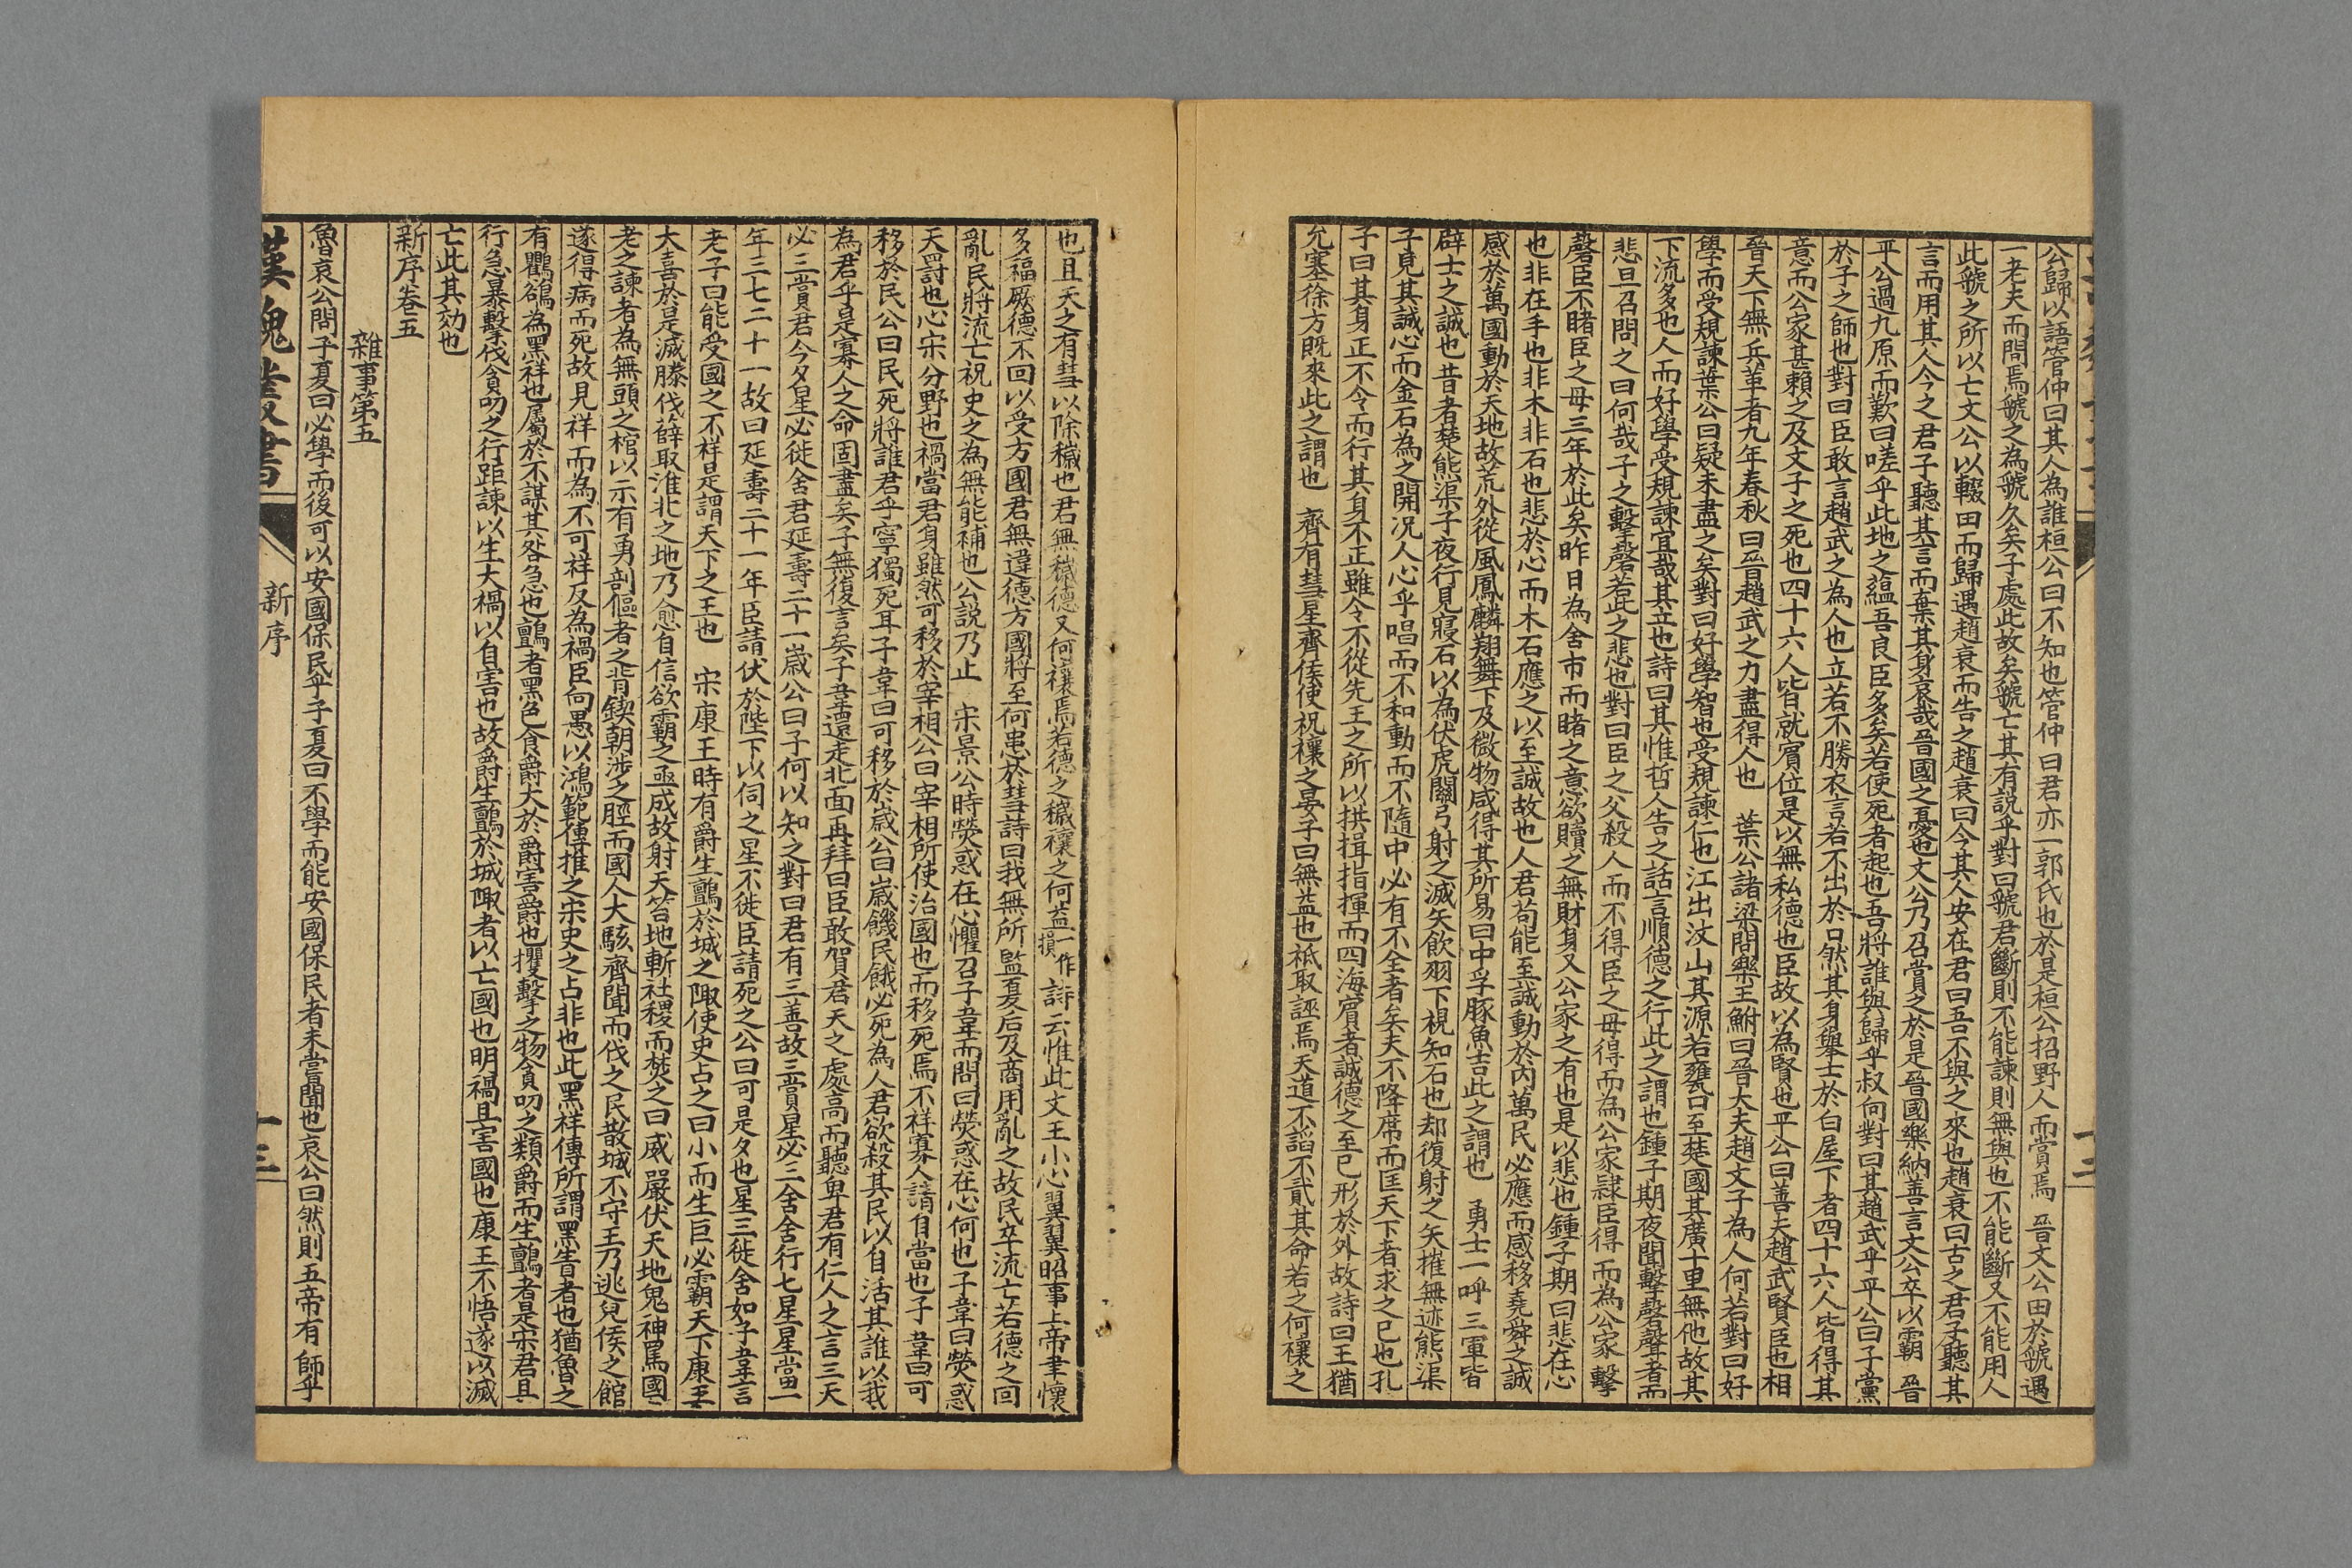 公歸以語管仲曰其人為誰桓公曰不知也管仲曰君亦一郭氏也於是桓公招野人而賞焉　晉文公田於虢遇
一老夫而問焉虢之為虢久矣子處此故矣虢亡其有說乎對曰虢君斷則不能諫則無與也不能斷又不能用人
此虢之所以亡文公以輟田而歸遇趙衰而告之趙衰曰今其人安在君曰吾不與之來也趙衰曰古之君子聽其
言而用其人今之君子聽其言而棄其身哀哉晉國之憂也文公乃召賞之於是晉國樂納善言文公卒以霸　晉
平公過九原而歎曰嗟乎此地之蘊吾良臣多矣若使死者起也吾將誰與歸乎叔向對曰其趙武乎平公曰子黨
於子之師也對曰臣敢言趙武之為人也立若不勝衣言若不出於口然其身舉士於白屋下者四十六人皆得其
意而公家甚賴之及文子之死也四十六人皆就賓位是以無私德也臣故以為賢也平公曰善夫趙武賢臣也相
晉天下無兵革者九年春秋曰晉趙武之力盡得人也　葉公諸梁問樂王鮒曰晉大夫趙文子為人何若對曰好
學而受規諫葉公曰疑未盡之矣對曰好學智也受規諫仁也江出汶山其源若甕口至楚國其廣十里無他故其
下流多也人而好學受規諫宜哉其立也詩曰其惟哲人告之話言順德之行此之謂也鍾子期夜聞擊磬聲者而
悲旦召問之曰何哉子之擊磬若此之悲也對曰臣之父殺人而不得臣之母得而為公家隸臣得而為公家擊
磬臣不睹臣之母三年於此矣昨日為舍市而睹之意欲贖之無財身又公家之有也是以悲也鍾子期曰悲在心
也非在手也非木非石也悲於心而木石應之以至誠故也人君苟能至誠動於內萬民必應而感移堯舜之誠
感於萬國動於天地故荒外從風鳳麟翔舞下及微物咸得其所易曰中孚豚魚吉此之謂也　勇士一呼三軍皆
辟士之誠也昔者楚熊渠子夜行見寢石以為伏虎關弓射之滅矢飲羽下視知石也却復射之矢摧無迹熊渠
子見其誠心而金石為之開況人心乎唱而不和動而不隨中必有不全者矣夫不降席而匡天下者求之己也孔
子曰其身正不令而行其身不正雖令不從先王之所以拱揖指揮而四海賓者誠德之至已形於外故詩曰王猶
允塞徐方既來此之謂也　齊有彗星齊侯使祝禳之晏子曰無益也祇取誣焉天道不謟不貳其命若之何禳之
也且天之有彗以除穢也君無穢德又何禳焉若德之穢禳之何益一作損詩云惟此文王小心翼翼昭事上帝聿懷
多福厥德不回以受方國君無違德方國將至何患於彗詩曰我無所監夏后及商用亂之故民卒流亡若德之回
亂民將流亡祝史之為無能補也公說乃止　宋景公時熒惑在心懼召子韋而問曰熒惑在心何也子韋曰熒惑
天罰也心宋分野也禍當君身雖然可移於宰相公曰宰相所使治國也而移死焉不祥寡人請自當也子韋曰可
移於民公曰民死將誰君乎寧獨死耳子韋曰可移於歲公曰歲饑民餓必死為人君欲殺其民以自活其誰以我
為君乎是寡人之命固盡矣子無復言矣子韋還走北面再拜曰臣敢賀君天之處高而聽卑君有仁人之言三天
必三賞君今夕星必徙舍君延壽二十一歲公曰子何以知之對曰君有三善故三賞星必三舍舍行七星星當一
年三七二十一故曰延壽二十一年臣請伏於陛下以伺之星不徙臣請死之公曰可是夕也星三徙舍如子韋言
老子曰能受國之不祥是謂天下之王也　宋康王時有爵生鸇於城之陬使史占之曰小而生巨必霸天下康王
大喜於是滅滕伐薛取淮北之地乃愈自信欲霸之亟成故射天笞地斬社稷而焚之曰威嚴伏天地鬼神罵國
老之諫者為無頭之棺以示有勇剖傴者之背鍥朝涉之脛而國人大駭齊聞而伐之民散城不守王乃逃兒侯之館
遂得病而死故見祥而為不可祥反為禍臣向愚以鴻範傳推之宋史之占非也此黑祥傳所謂黑眚者也猶魯之
有鸜鵒為黑祥也屬於不謀其咎急也鸇者黑色食爵大於爵害爵也攫擊之物貪叨之類爵而生鸇者是宋君且
行急暴擊伐貪叨之行距諫以生大禍以自害也故爵生鸇於城陬者以亡國也明禍且害國也康王不悟遂以滅
亡此其効也
新序卷五
雜事第五
魯哀公問子夏曰必學而後可以安國保民乎子夏曰不學而能安國保民者未嘗聞也哀公曰然則五帝有師乎
漢魏叢書　新序　十三